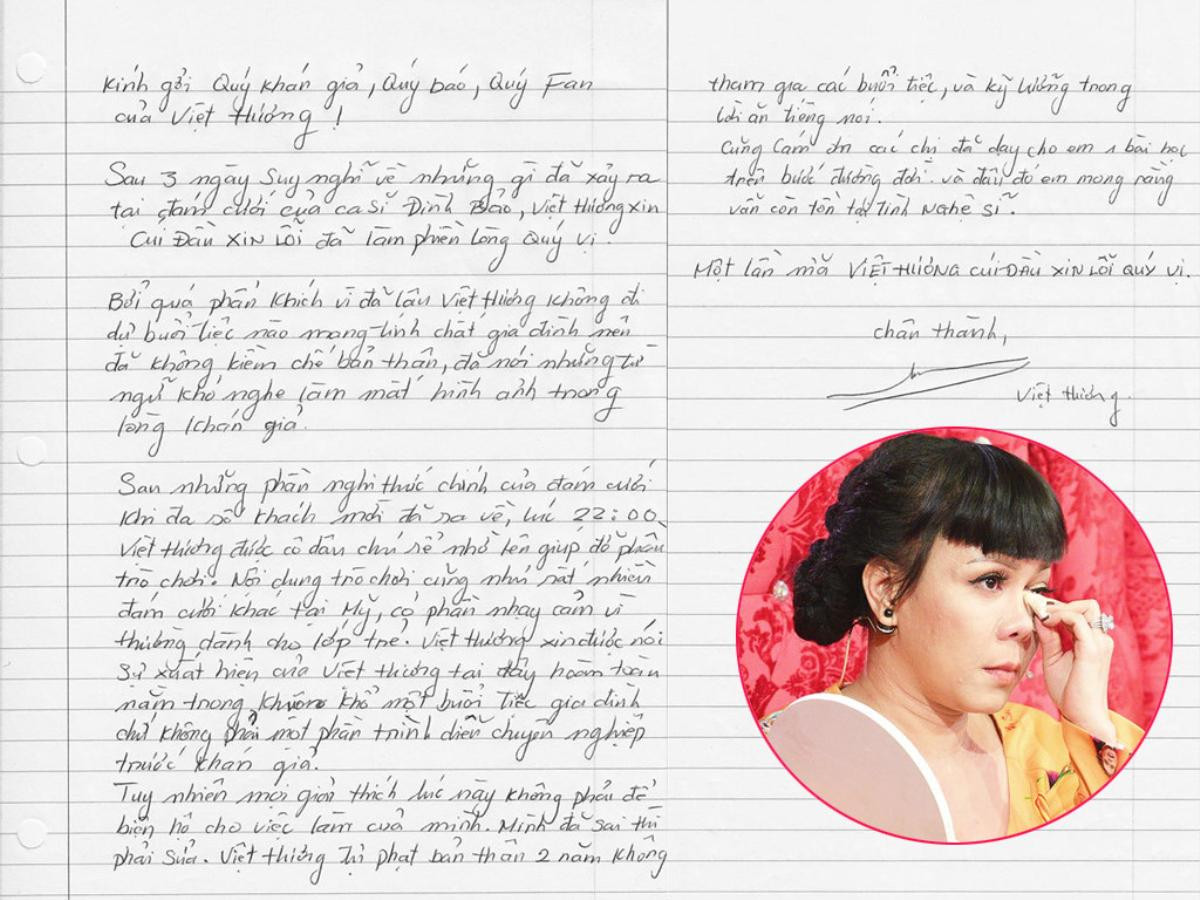 Kính gởi Quý khán giả, Quý báo, Quý Fan
của Việt Hương !
Sau 3 ngày suy nghĩ về những gì đã xảy ra
tại đám cưới của ca sĩ Đình Bảo, Việt Hương xin
CÚI ĐẦU XIN LỖI đã làm phiền lòng Quý vị.
Bởi quá phấn khích vì đã lâu Việt Hương không đi
dự buổi tiệc nào mang tính chất gia đình nên
đã không kiềm chế bản thân, đã nói những từ
ngữ khó nghe làm mất hình ảnh trong
lòng khán giả.
Sau những phần nghi thức chính của đám cưới
khi đa số khách mời đã ra về, lúc 22:00
Việt Hương được cô dâu chú rể nhờ lên giúp đỡ phần
trò chơi. Nội dung trò chơi cũng như rất nhiều
đám cưới khác tại Mỹ, có phần nhạy cảm vì
thường dành cho lớp trẻ. Việt Hương xin được nói
sự xuất hiện của Việt Hương tại đây hoàn toàn
nằm trong khuôn khổ một buổi tiệc gia đình
chứ không phải một phần trình diễn chuyên nghiệp
trước khán giả.
Tuy nhiên mọi giải thích lúc này không phải để
biện hộ cho việc làm của mình. Mình đã sai thì
phải sửa. Việt Hương tự phạt bản thân 2 năm không
tham gia các buổi tiệc, và kỹ lưỡng trong
lời ăn tiếng nói.
Cũng cám ơn các chị đã dạy cho em 1 bài học
trên bước đường đời. và đâu đó em mong rằng
vẫn còn tồn tại TÌNH NGHỆ SĨ.
Một lần nữa VIỆT HƯƠNG CÚI ĐẦU XIN LỖI QUÝ VỊ.
chân thành,
Việt Hương